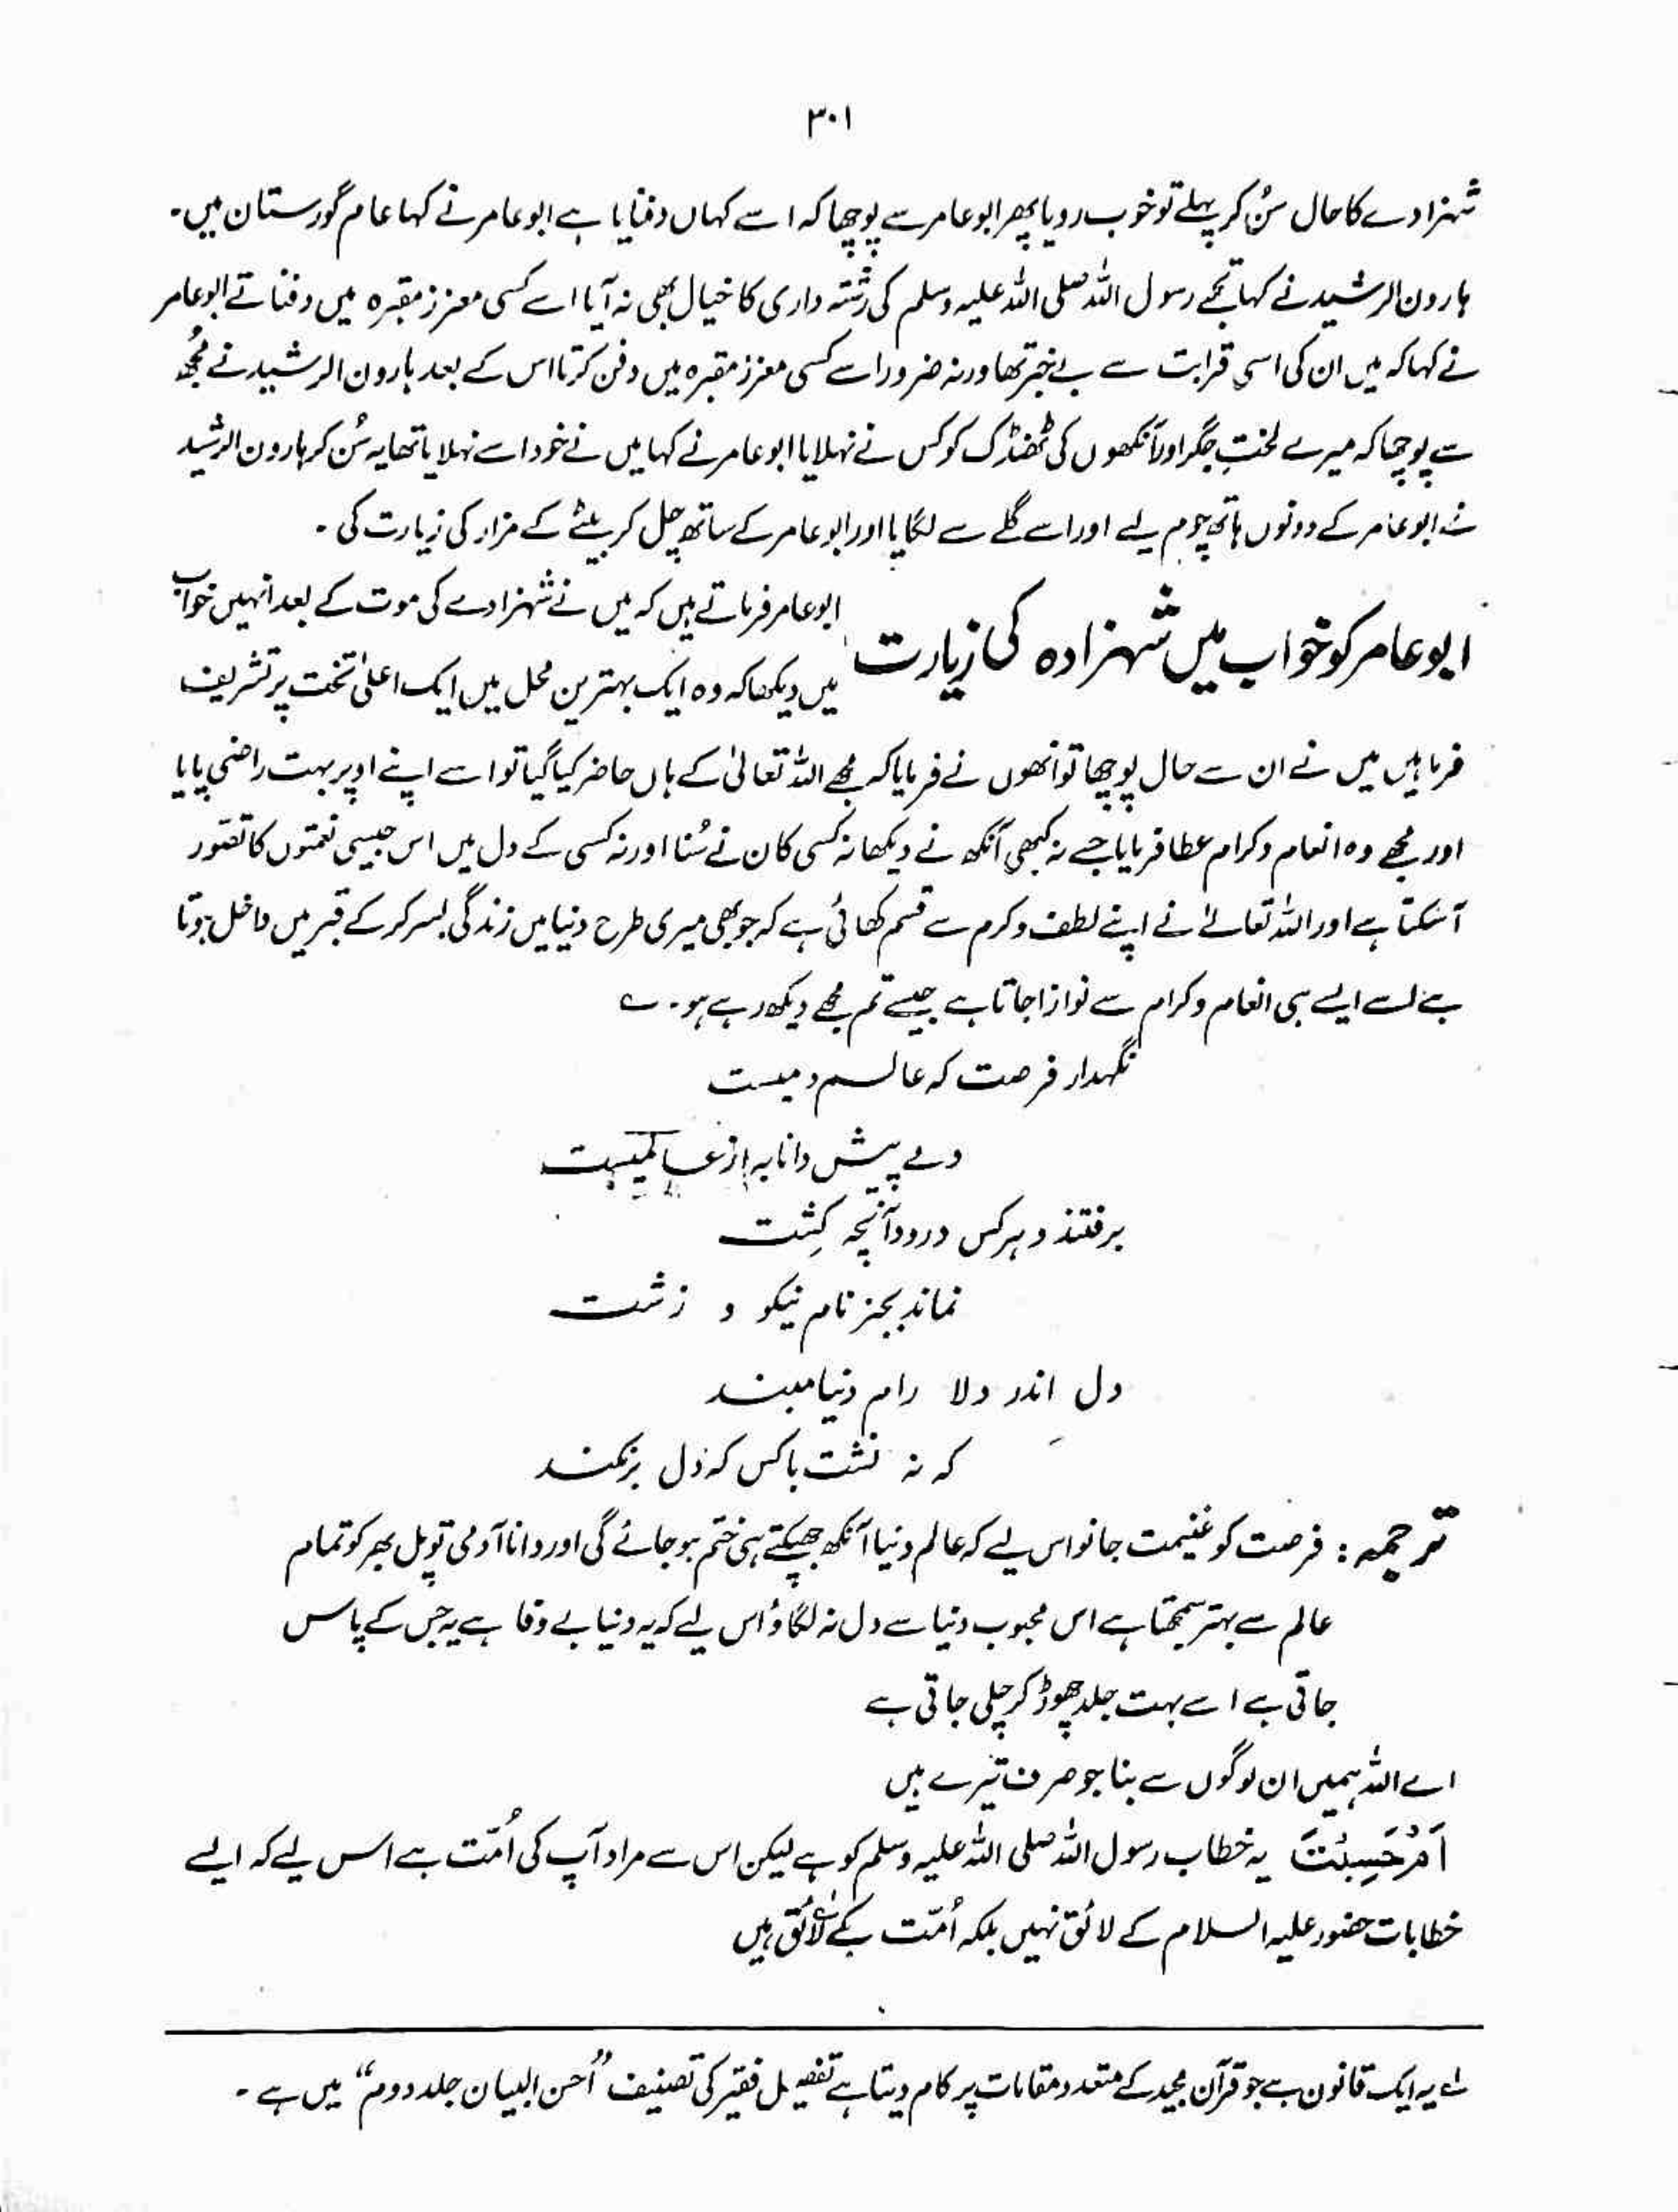 ۳۰۱
شہزادے کا حال سُن کر پہلے تو خوب رویا پھر ابو عامر سے پوچھا کہ اسے کہاں دفنایا ہے ابو عامر نے کہا عام گورستان میں۔
ہارون الرشید نے کہا تجھے رسول اللہ صلی اللہ علیہ وسلم کی رشتہ داری کا خیال بھی نہ آیا اسے کسی معزز مقبرہ میں دفناتے ابو عامر
نے کہا کہ میں ان کی اسی قرابت سے بے خبر تھا ورنہ ضرور اسے کسی معزز مقبرہ میں دفن کرتا اس کے بعد ہارون الرشید نے مجُھ
سے پوچھا کہ میرے لختِ جگر اور آنکھوں کی ٹھنڈک کو کس نے نہلایا ابو عامر نے کہا میں نے خود اسے نہلایا تھا یہ سُن کر ہارون الرشید
نے ابو عامر کے دونوں ہاتھ چوم لیے اور اسے گلے سے لگایا اور ابو عامر کے ساتھ چل کر بیٹے کے مزار کی زیارت کی ۔
ابو عامر کو خواب میں شہزادہ کی زیارت
ابو عامر فرماتے ہیں کہ میں نے شہزادے کی موت کے بعد انہیں خواب
میں دیکھا کہ وہ ایک بہترین محل میں ایک اعلیٰ تخت پر تشریف
فرما ہیں میں نے ان سے حال پوچھا تو انھوں نے فرمایا کہ مجھے اللہ تعالیٰ کے ہاں حاضر کیا گیا تو اسے اپنے اوپر بہت راضی پایا
اور مجھے وہ انعام و کرام عطا فرمایا جسے نہ کبھی آنکھ نے دیکھا نہ کسی کان نے سُنا اور نہ کسی کے دل میں اس جیسی نعمتوں کا تصّور
آ سکتا ہے اور اللہ تعالےٰ نے اپنے لطف و کرم سے قسم کھائی ہے کہ جو بھی میری طرح دنیا میں زندگی بسر کر کے قبر میں داخل ہوتا
ہے اسے ایسے ہی انعام و کرام سے نوازا جاتا ہے جیسے تم مجھے دیکھ رہے ہو۔ ے
نگہدار فرصت کہ عالم دمیست
دمے پیش دانا بہ از عالمیست
برفتند و ہر کس درود آنچہ کِشت
نماند بجز نام نیکو و زشت
دل اندر دلا رام دنیا مبند
کہ نہ نشت باکس کہ دل برنکند
ترجمہ : فرصت کو غنیمت جانو اس لیے کہ عالم دنیا آنکھ جھپکتے ہی ختم ہو جائے گی اور دانا آدمی تو پل بھر کو تمام
عالم سے بہتر سمجھتا ہے اس محبوب دنیا سے دل نہ لگاؤ اس لیے کہ یہ دنیا بے وفا ہے یہ جس کے پاس
جاتی ہے اسے بہت جلد چھوڑ کر چلی جاتی ہے
اے اللہ ہمیں ان لوگوں سے بنا جو صرف تیرے ہیں
اَمْ حَسِبْتَ یہ خطاب رسول اللہ صلی اللہ علیہ وسلم کو ہے لیکن اس سے مراد آپ کی اُمّت ہے اس لیے کہ ایسے
خطابات حضور علیہ السلام کے لائق نہیں بلکہ اُمّت کے لائق ہیں
لے یہ ایک قانون ہے جو قرآن مجید کے متعدد مقامات پر کام دیتا ہے تفصیل فقیر کی تصنیف ”احسن البیان جلد دوم“ میں ہے ۔